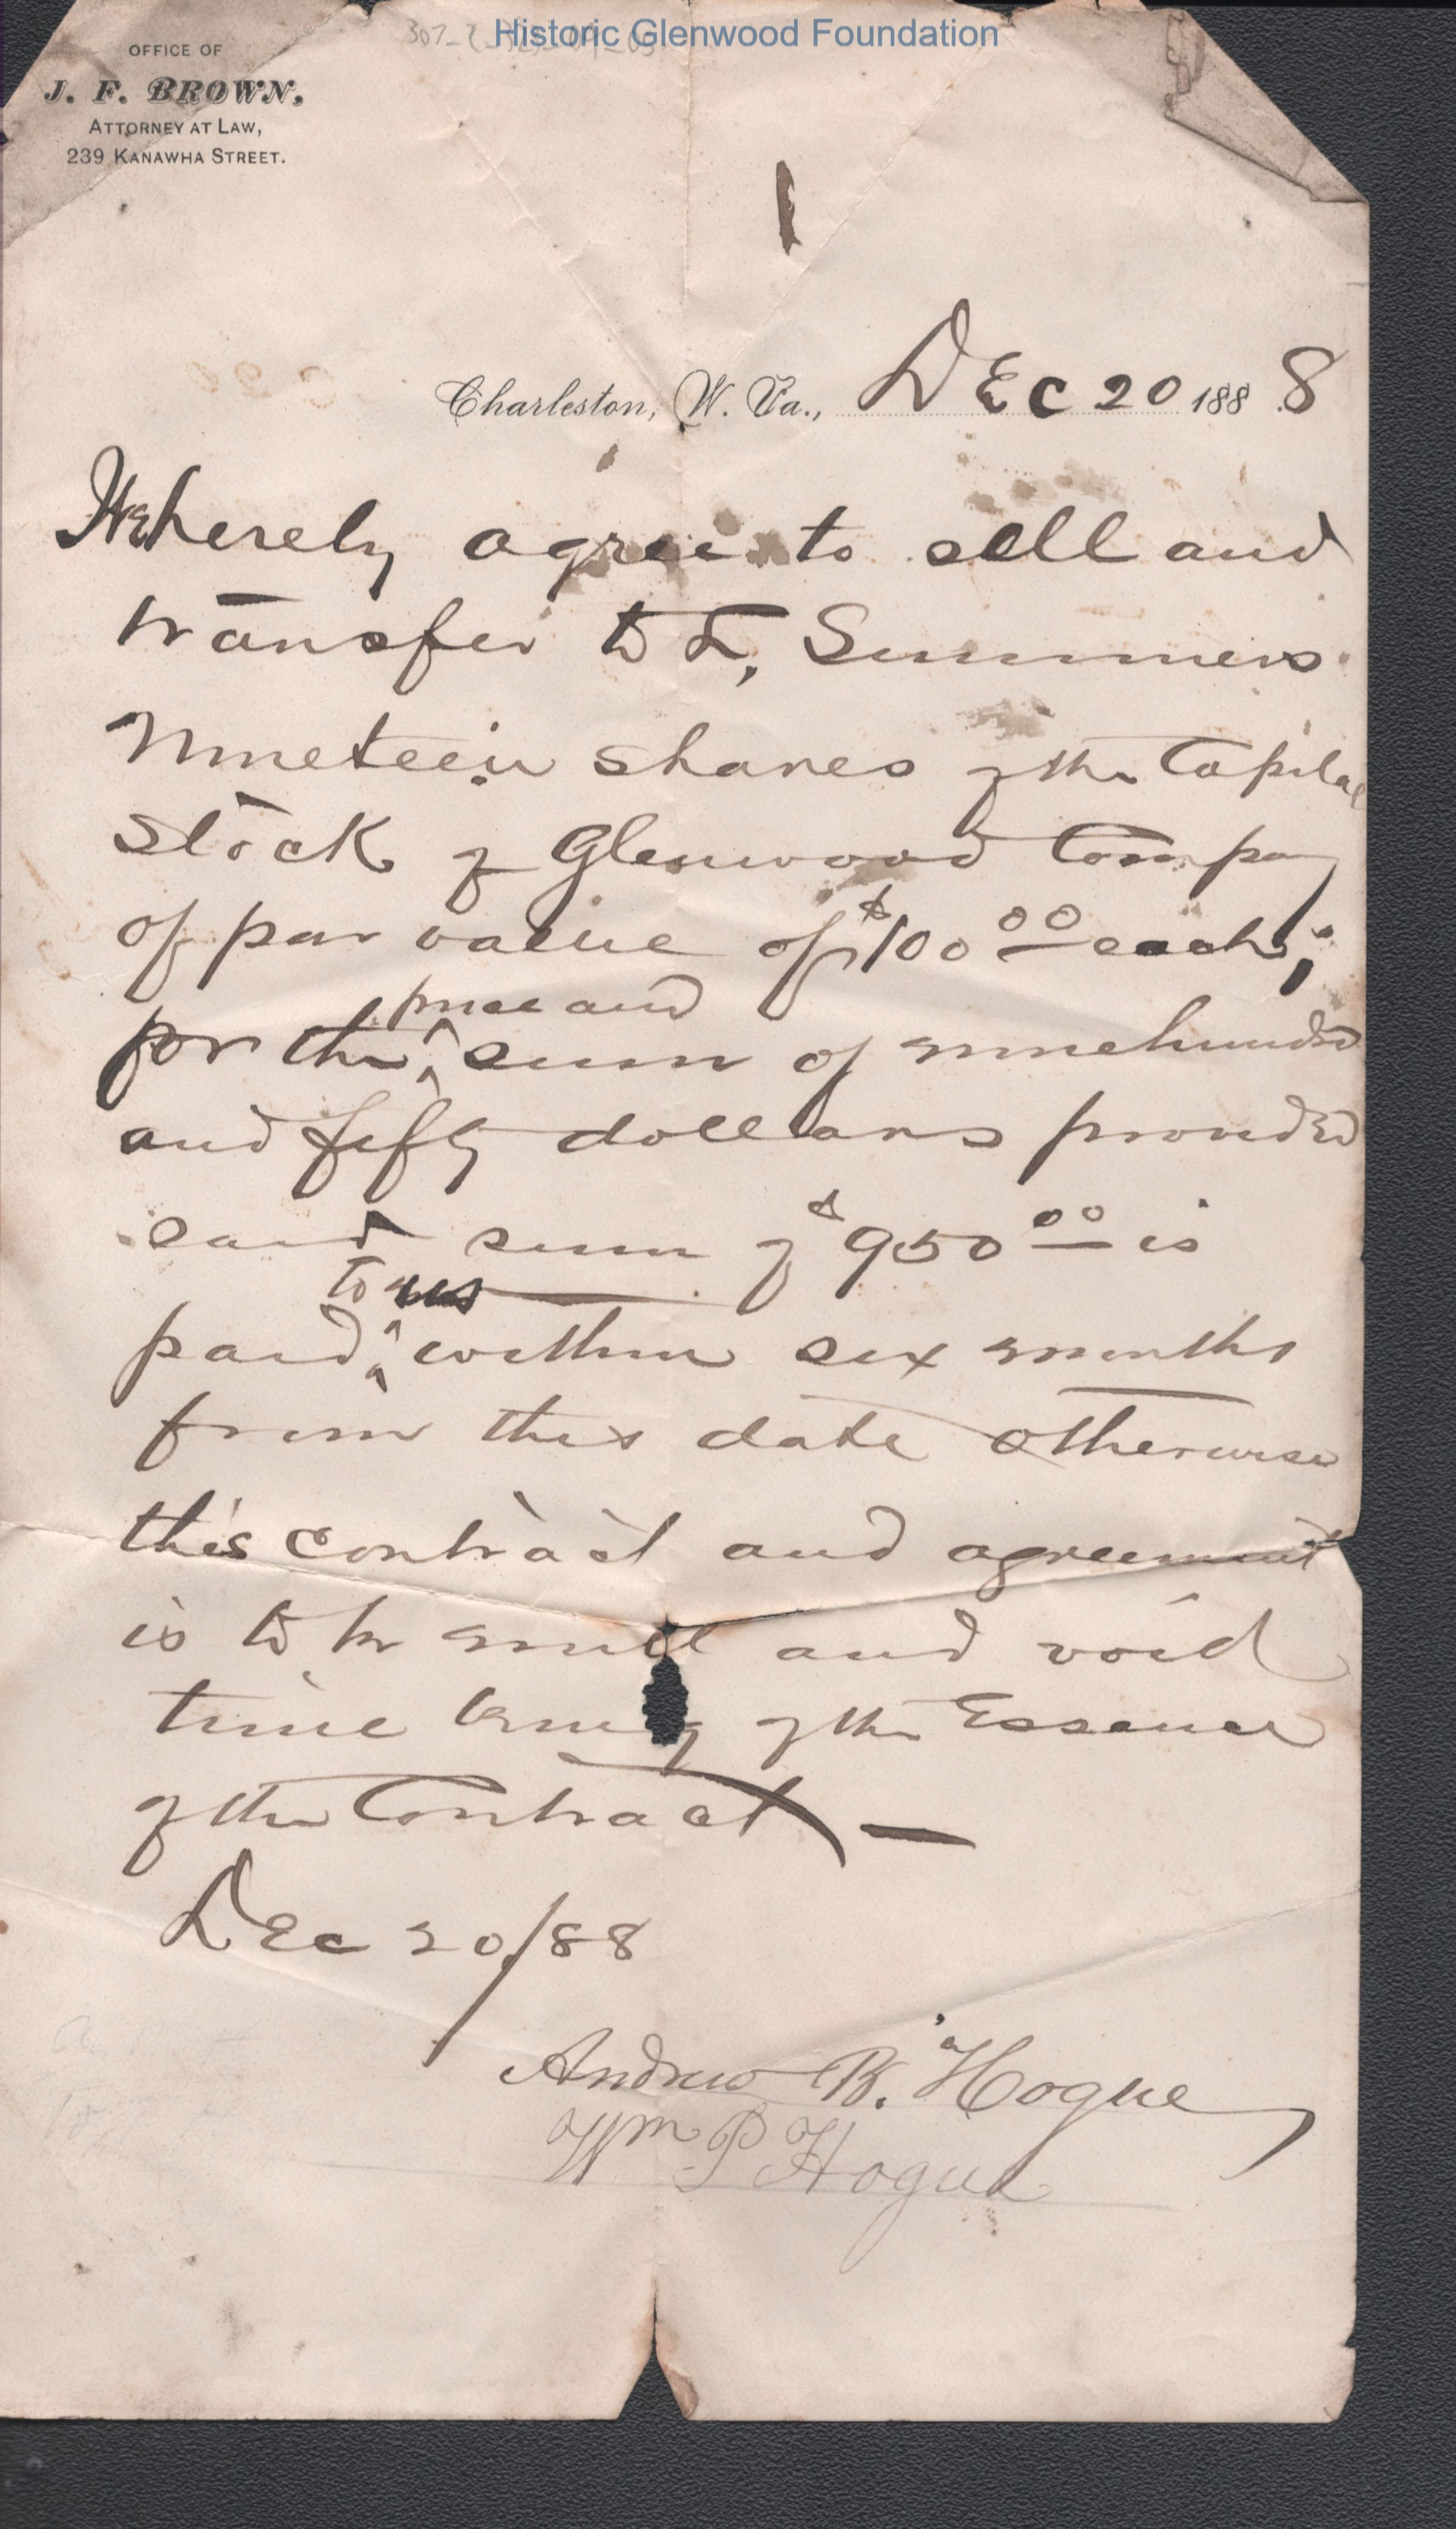 Historic Glenwood Foundation
OFFICE OF
J. F. BROWN,
ATTORNEY AT LAW,
239 KANAWHA STREET.
Charleston, W. Va., DEC 20 188 8
We hereby agree to sell and
transfer to L, Summers
Nineteen shares of the Capital
Stock of Glenwood Company
of par value of $100 00 each;
price and
for the ^ sum of ninehundred
and fifty dollars provided
said sum of $950 00 is
to us
paid ^ within six months
from this date otherwise
this contract and agreement
is to be null and void
time being of the Essence
of the Contract —
Dec 20/88
Andrew B. Hogue
Wm P Hogue